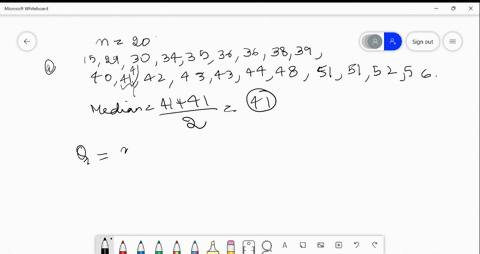 Microsoft Whiteboard
Sign out
n = 20
a 15, 29, 30, 34, 35, 36, 36, 38, 39,
40, 41, 41, 42, 43, 43, 44, 48, 51, 51, 52, 56.
Median = 41+41 / 2 = 41
Q1 =